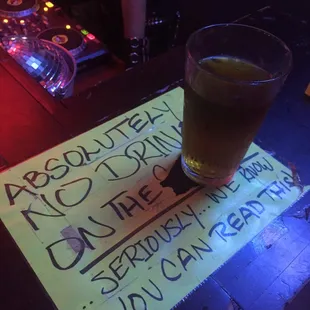 ABSOLUTELY
NO DRINK
ON THE
...SERIOUSLY... WE KNOW
...YOU CAN READ THIS